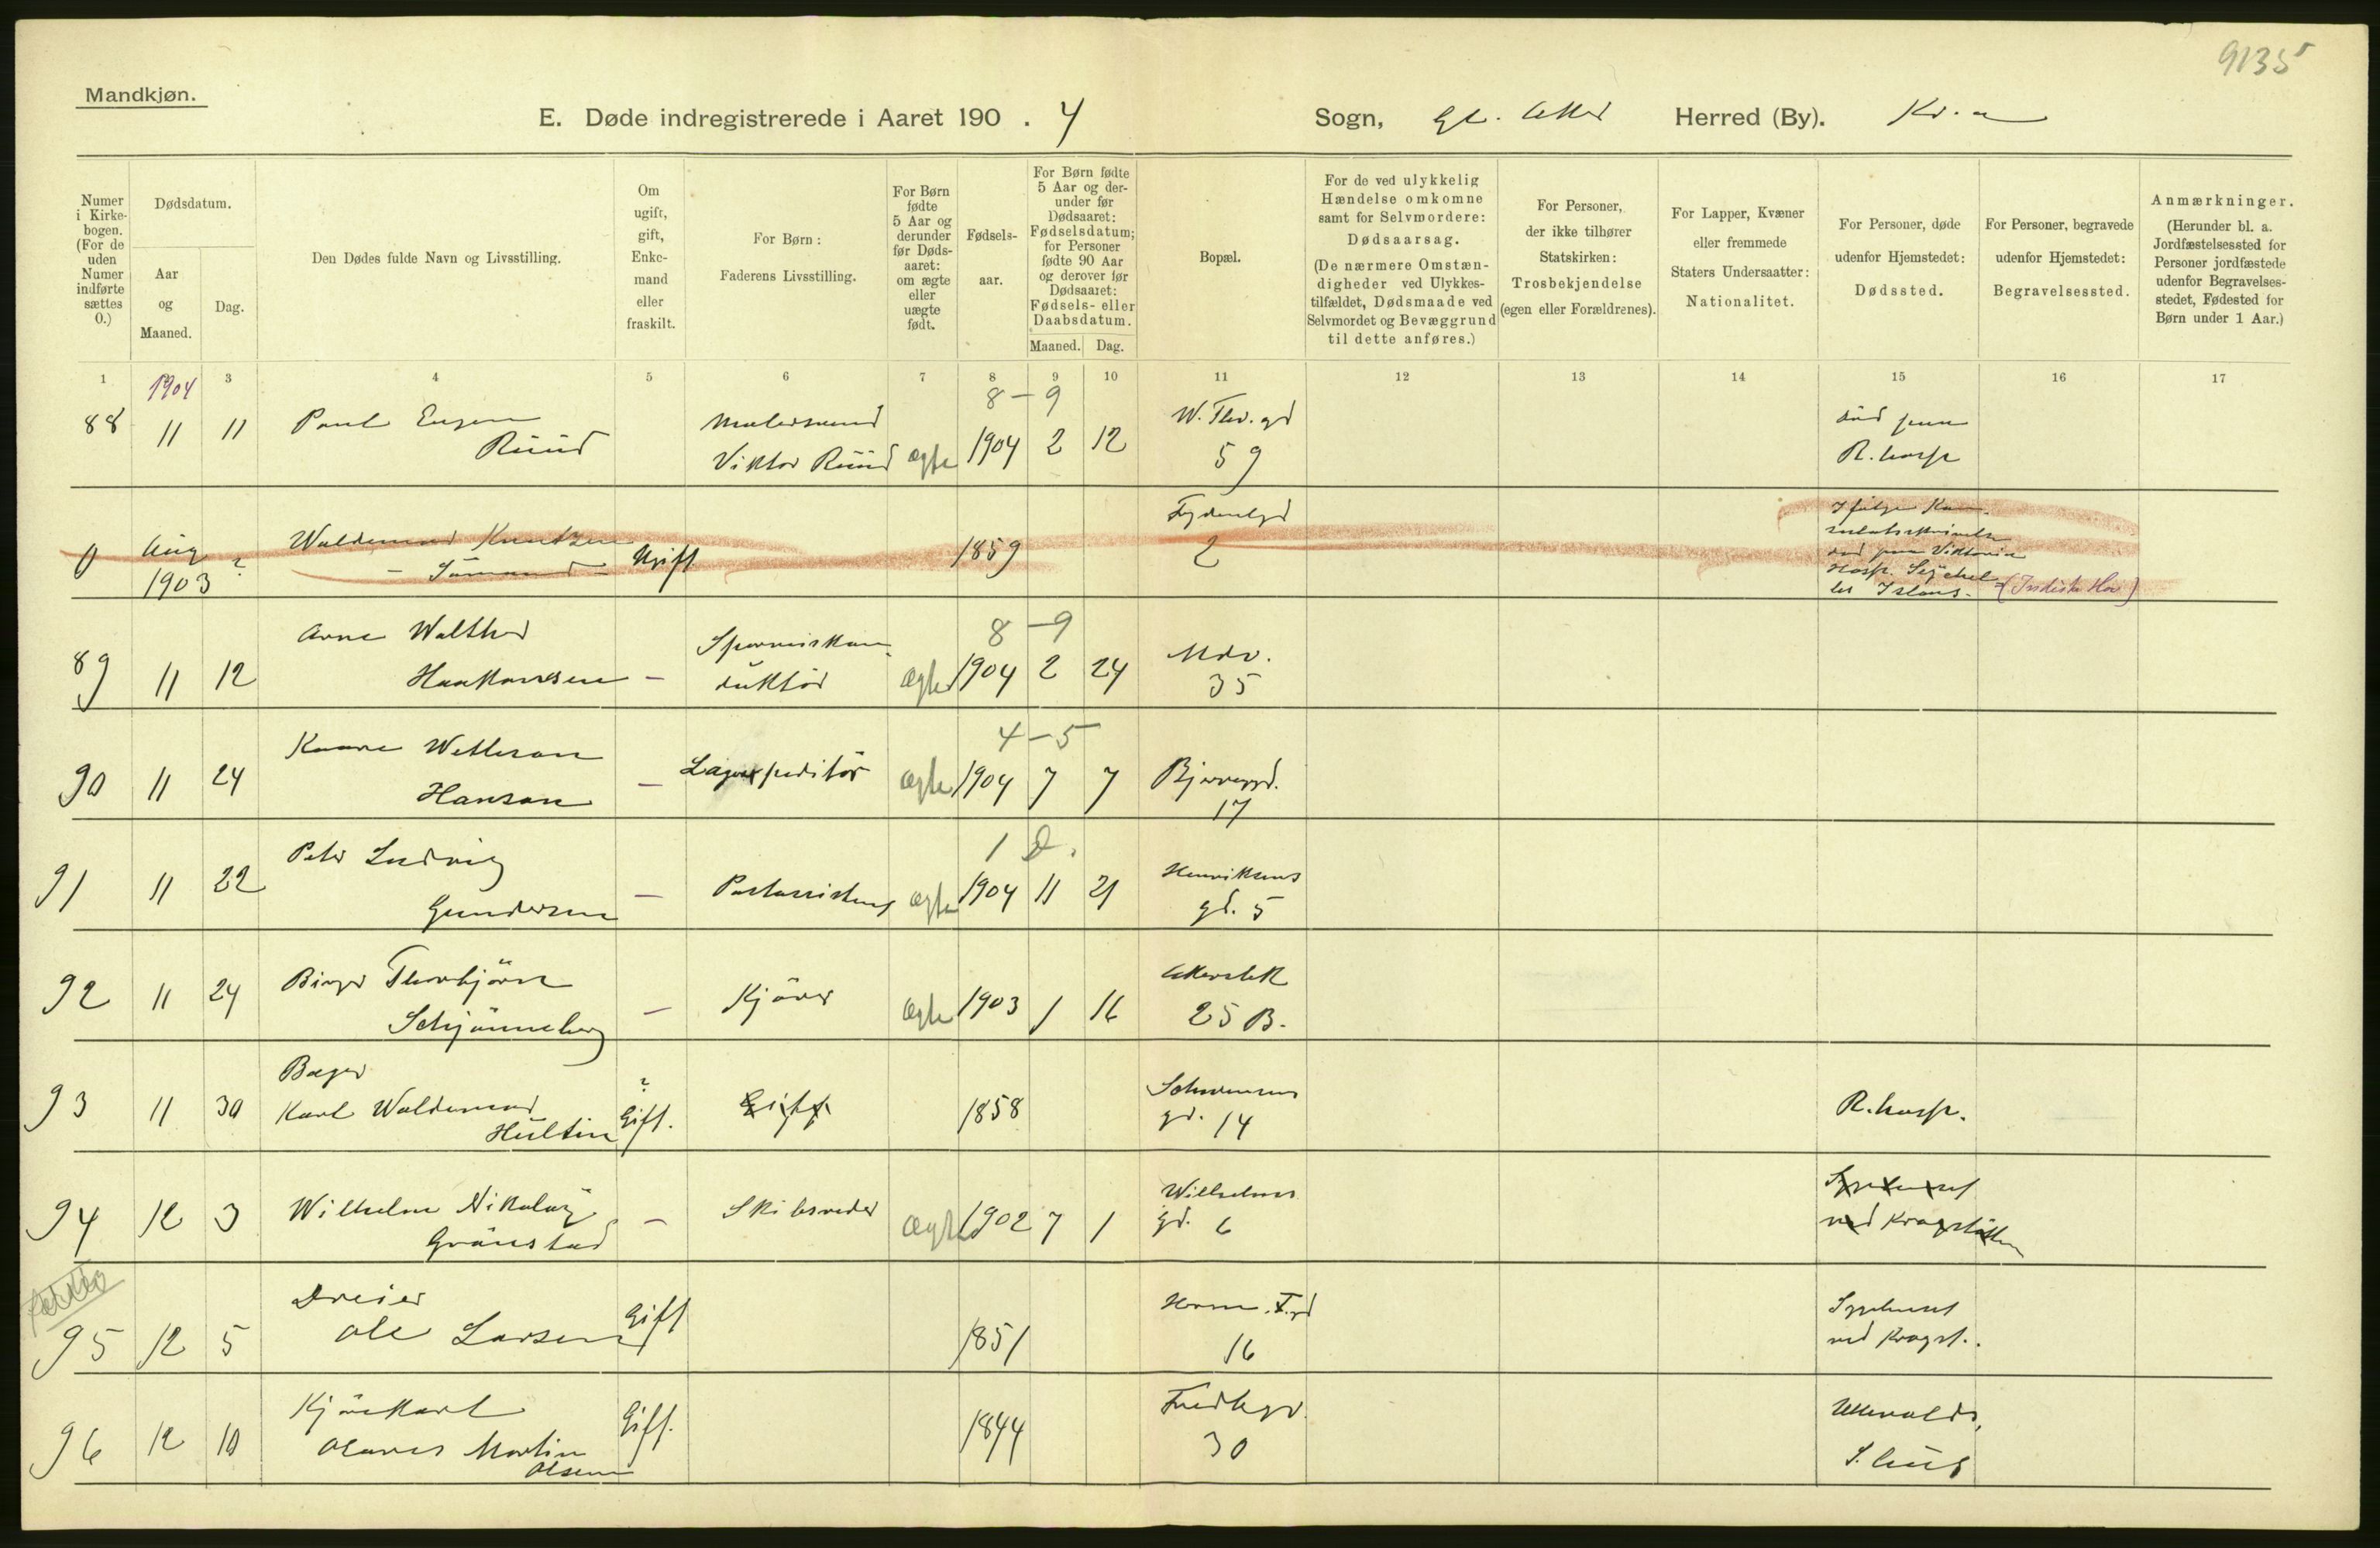 9135
Mandkjøn.
E. Døde indregistrerede i Aaret 190 . 4 Sogn, Gl. Aker Herred (By). Kr.a
Numer
i Kirke-
bogen.
(For de
uden
Numer
indførte
sættes
0.)
Dødsdatum.
Aar
og
Maaned.
Dag.
Den Dødes fulde Navn og Livsstilling.
Om
ugift,
gift,
Enke-
mand
eller
fraskilt.
For Børn:
Faderens Livsstilling.
For Børn
fødte
5 Aar og
derunder
før Døds-
aaret:
om ægte
eller
uægte
født.
Fødsels-
aar.
For Børn fødte
5 Aar og der-
under før
Dødsaaret:
Fødselsdatum;
for Personer
fødte 90 Aar
og derover før
Dødsaaret:
Fødsels- eller
Daabsdatum.
Maaned. Dag.
Bopæl.
For de ved ulykkelig
Hændelse omkomne
samt for Selvmordere:
Dødsaarsag.
(De nærmere Omstæn-
digheder ved Ulykkes-
tilfældet, Dødsmaade ved
Selvmordet og Bevæggrund
til dette anføres.)
For Personer,
der ikke tilhører
Statskirken:
Trosbekjendelse
(egen eller Forældrenes).
For Lapper, Kvæner
eller fremmede
Staters Undersaatter:
Nationalitet.
For Personer, døde
udenfor Hjemstedet:
Dødssted.
For Personer, begravede
udenfor Hjemstedet:
Begravelsessted.
Anmærkninger.
(Herunder bl. a.
Jordfæstelsessted for
Personer jordfæstede
udenfor Begravelses-
stedet, Fødested for
Børn under 1 Aar.)
1 3 4 5 6 7 8 9 10 11 12 13 14 15 16 17
1904
8 - 9
88 11 11 Paul Eugen
Ruud
Malersvend
Viktor Ruud ægte 1904 2 12
W. Thr. gd
59
död paa
R. hosp
0 Aug
1903 ?
Waldemar Knutzen
- Sömand -
Ugift 1859
Fydenlgd
2
Ifölge Kon-
sulatsskrivelse
död paa Viktoria
Hosp. Seychel-
les Islans. (Indiske Hav)
8 - 9
89 11 12 Arne Walther
Haakonsen -
Sporveiskon-
duktör
Ægte 1904 2 24
Mdv.
35
4 - 5
90 11 24 Kaare Wetleson
Hanson -
Lagerxpeditör ægte 1904 7 7
Bjerregd.
17
1 D.
91 11 22 Peter Ludvig
Gundersen -
Postassistent ægte 1904 11 21
Henriksens
gd. 5
92 11 24 Birger Thorbjörn
Schjönneberg -
Kjörer ægte 1903 1 16
Akersbk
25 B.
93 11 30 Bager
Karl Waldemar
Hultin
?
Gift. Gift 1858
Schwensens
gd. 14
R. hosp.
94 12 3 Wilhelm Nikolai
Grönstad -
Skibsreder Ægte 1902 7 1
Wilhelms
gd. 6
Sygehuset
ved Krogstötten
95 12 5 Dreier
Ole Larsen
Gift 1851
Herm. F. gd
16
Sygehuset
ved Krogst.
96 12 10 Kjörekarl
Olaves Martin
Olsen
Gift. 1844
Fredkgd.
30
Ullevolds
S. huus